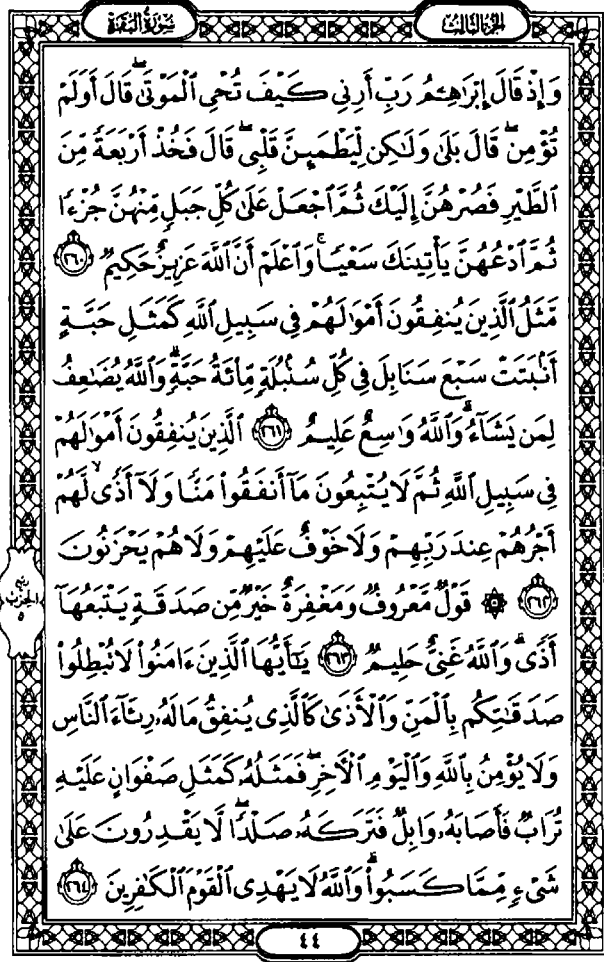 الجزء الثالث
سورة البقرة
وَإِذْ قَالَ إِبْرَٰهِـۧمُ رَبِّ أَرِنِى كَيْفَ تُحْىِ ٱلْمَوْتَىٰ ۖ قَالَ أَوَلَمْ
تُؤْمِن ۖ قَالَ بَلَىٰ وَلَـٰكِن لِّيَطْمَئِنَّ قَلْبِى ۖ قَالَ فَخُذْ أَرْبَعَةً مِّنَ
ٱلطَّيْرِ فَصُرْهُنَّ إِلَيْكَ ثُمَّ ٱجْعَلْ عَلَىٰ كُلِّ جَبَلٍ مِّنْهُنَّ جُزْءًا
ثُمَّ ٱدْعُهُنَّ يَأْتِينَكَ سَعْيًا ۚ وَٱعْلَمْ أَنَّ ٱللَّهَ عَزِيزٌ حَكِيمٌ ٢٦٠
مَّثَلُ ٱلَّذِينَ يُنفِقُونَ أَمْوَٰلَهُمْ فِى سَبِيلِ ٱللَّهِ كَمَثَلِ حَبَّةٍ
أَنۢبَتَتْ سَبْعَ سَنَابِلَ فِى كُلِّ سُنۢبُلَةٍ مِّا۟ئَةُ حَبَّةٍ ۗ وَٱللَّهُ يُضَـٰعِفُ
لِمَن يَشَآءُ ۗ وَٱللَّهُ وَٰسِعٌ عَلِيمٌ ٢٦١ ٱلَّذِينَ يُنفِقُونَ أَمْوَٰلَهُمْ
فِى سَبِيلِ ٱللَّهِ ثُمَّ لَا يُتْبِعُونَ مَآ أَنفَقُوا۟ مَنًّا وَلَآ أَذًى ۙ لَّهُمْ
أَجْرُهُمْ عِندَ رَبِّهِمْ وَلَا خَوْفٌ عَلَيْهِمْ وَلَا هُمْ يَحْزَنُونَ
٢٦٢ ۞ قَوْلٌ مَّعْرُوفٌ وَمَغْفِرَةٌ خَيْرٌ مِّن صَدَقَةٍ يَتْبَعُهَآ
أَذًى ۗ وَٱللَّهُ غَنِىٌّ حَلِيمٌ ٢٦٣ يَـٰٓأَيُّهَا ٱلَّذِينَ ءَامَنُوا۟ لَا تُبْطِلُوا۟
صَدَقَـٰتِكُم بِٱلْمَنِّ وَٱلْأَذَىٰ كَٱلَّذِى يُنفِقُ مَالَهُۥ رِئَآءَ ٱلنَّاسِ
وَلَا يُؤْمِنُ بِٱللَّهِ وَٱلْيَوْمِ ٱلْـَٔاخِرِ ۖ فَمَثَلُهُۥ كَمَثَلِ صَفْوَانٍ عَلَيْهِ
تُرَابٌ فَأَصَابَهُۥ وَابِلٌ فَتَرَكَهُۥ صَلْدًا ۖ لَّا يَقْدِرُونَ عَلَىٰ
شَىْءٍ مِّمَّا كَسَبُوا۟ ۗ وَٱللَّهُ لَا يَهْدِى ٱلْقَوْمَ ٱلْكَـٰفِرِينَ ٢٦٤
ربع
الحزب
٥
٤٤